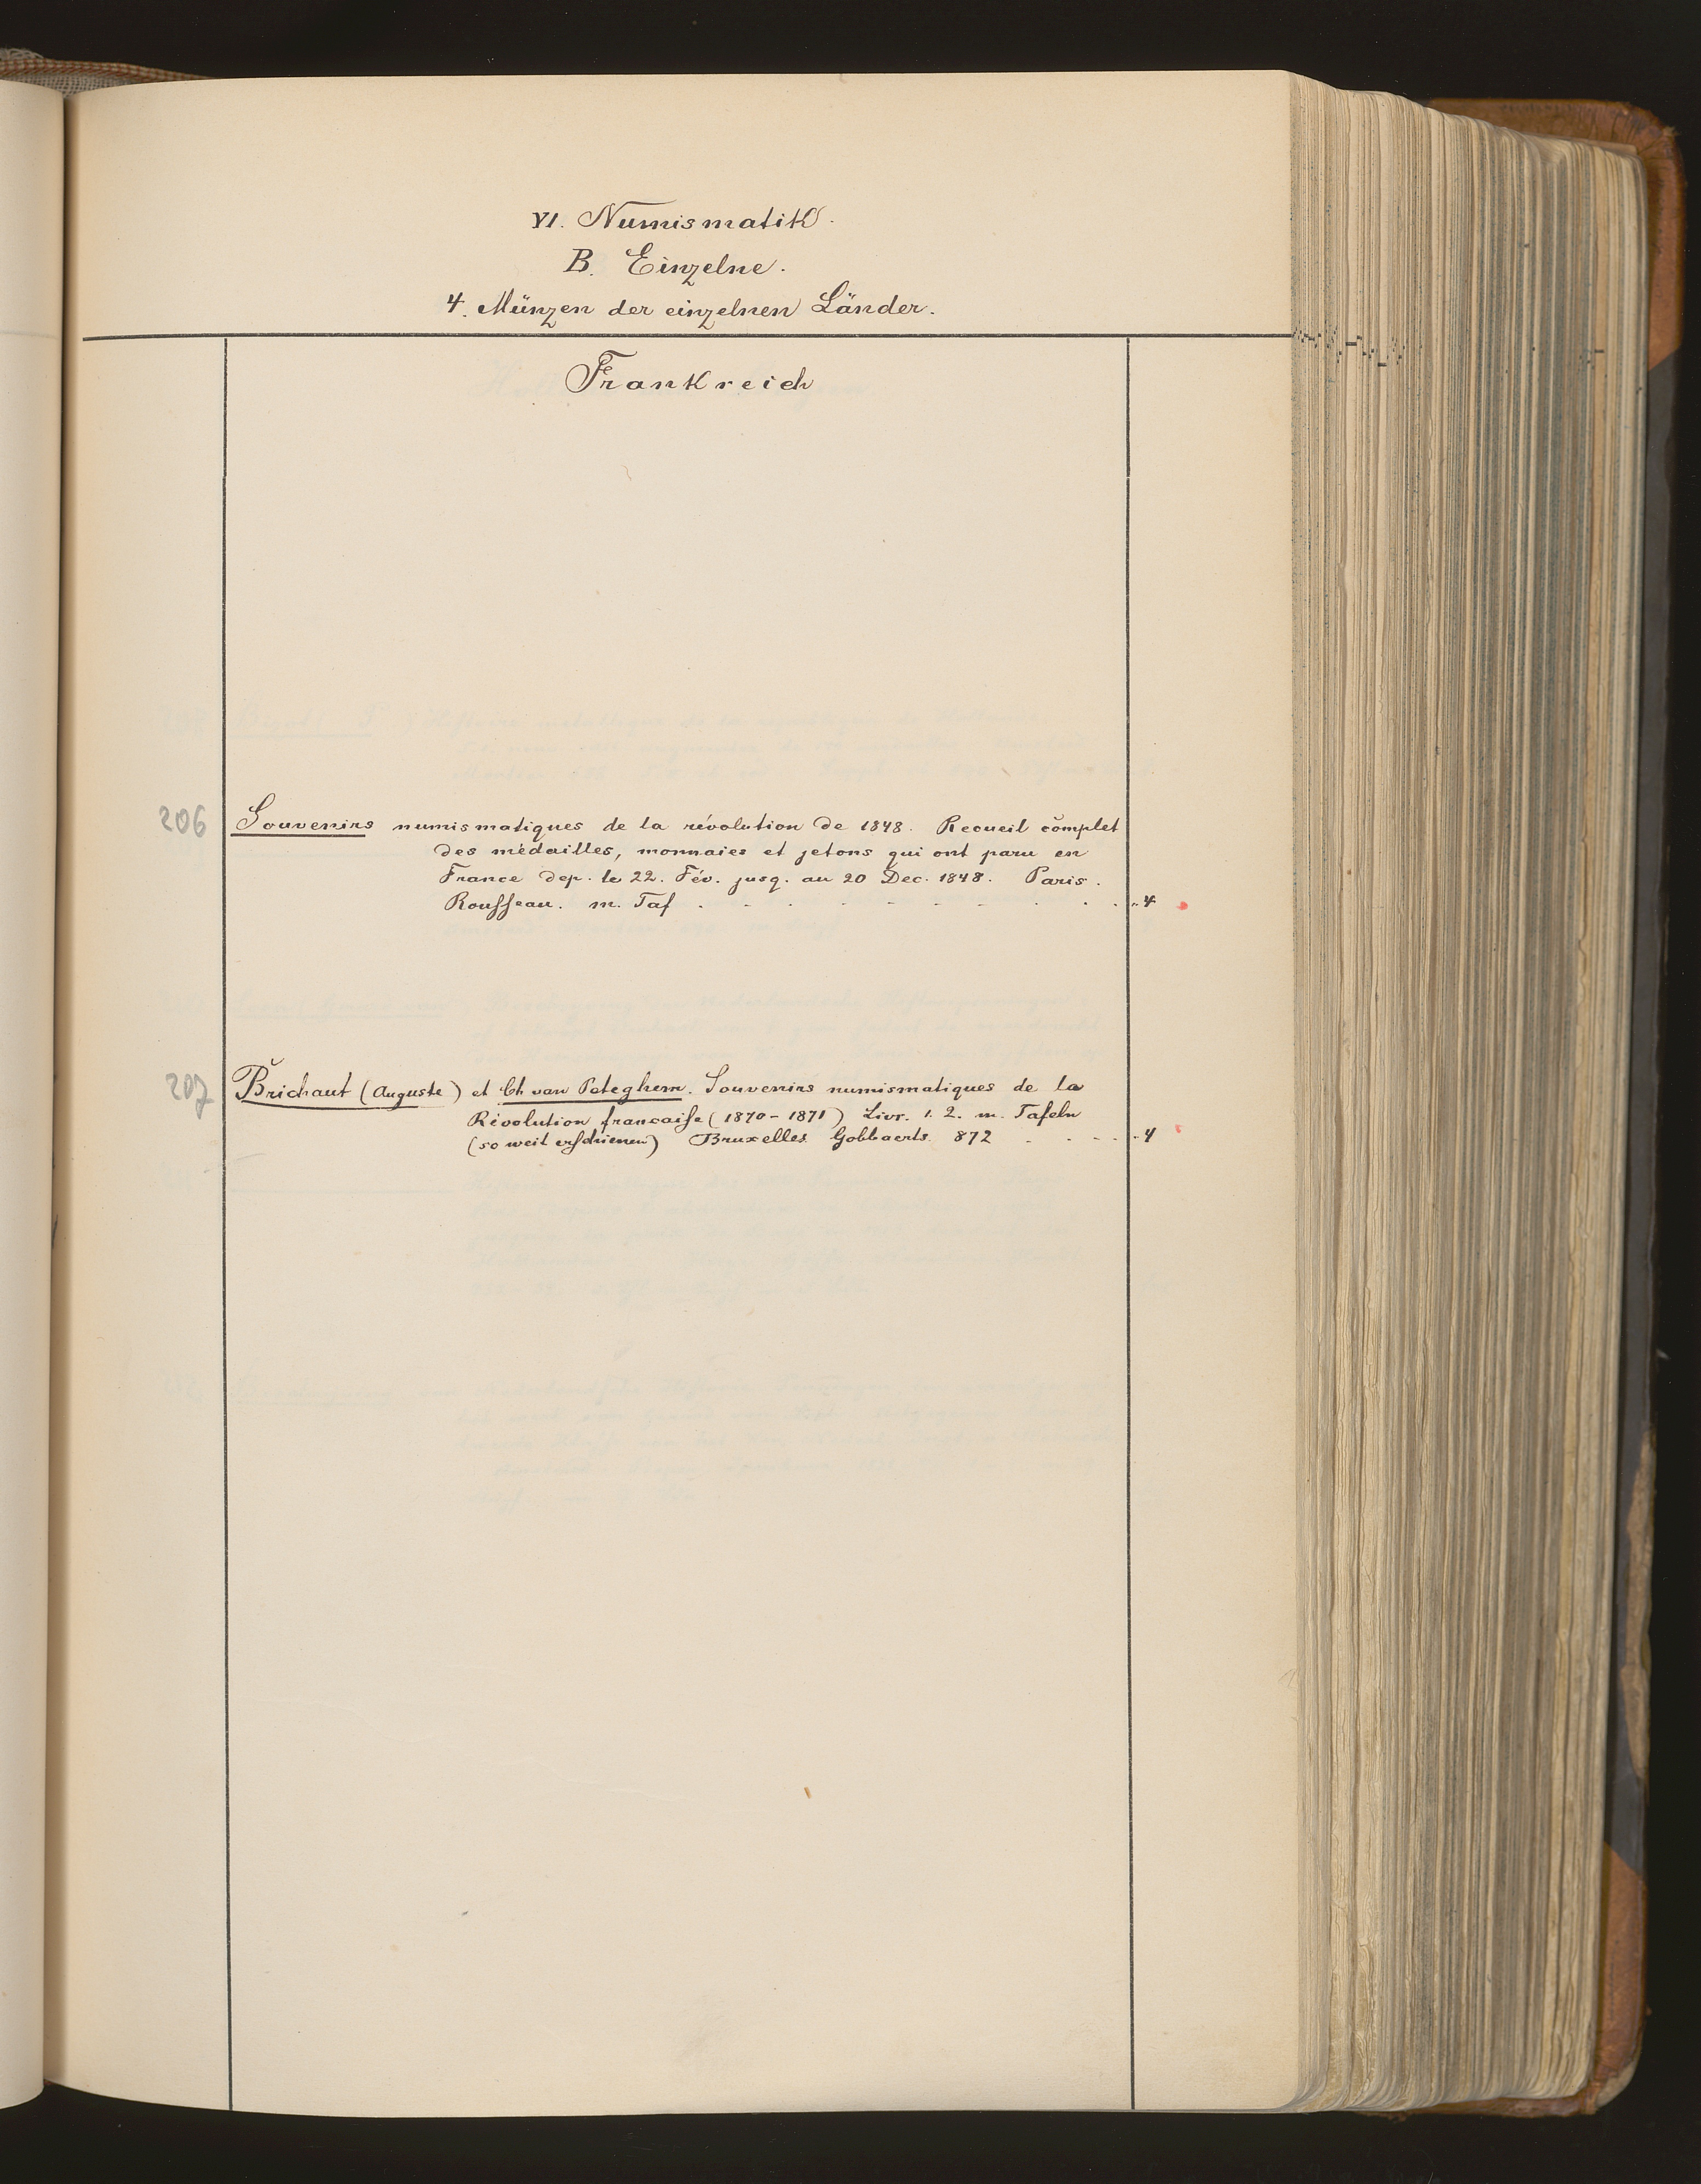 VI. Numismatik.
B. Einzelne.
4. Münzen der einzelnen Länder.
Frankreich
206 Souvenirs numismatiques de la révolution de 1848. Recueil complet
des médailles, monnaies et jetons qui ont paru en
France dep. le 22. Fév. jusq. au 20 Dec. 1848. Paris.
Rouſseau. m. Taf . . . . . . . . . . 4
207 Brichaut (Auguste) et Ch van Peteghem. Souvenirs numismatiques de la
Révolution francaiſe (1870-1871) Livr. 1. 2. m. Tafeln
(so weit erſchienen) Bruxelles Gobbaerts. 872 . . . . . 4